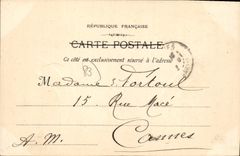 RÉPUBLIQUE FRANÇAISE
CARTE POSTALE
Ce côté est exclusivement réservé à l'adresse
Madame Fortoul
15 Rue Macé
Cannes
A. M.